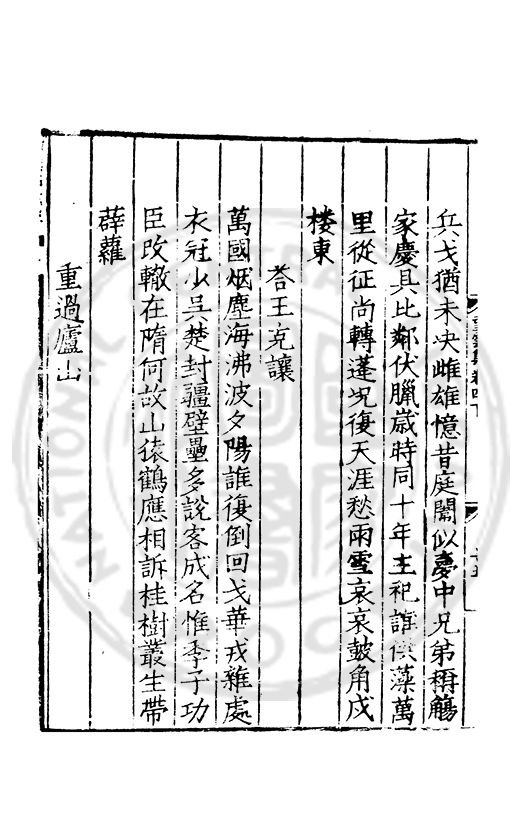 兵戈猶未决雌雄憶昔庭闈似夢中兄弟稱觴
家慶具比鄰伏臘歲時同十年主祀誰供藻萬
里從征尚轉蓬况復天涯愁雨雪哀哀皷角戍
楼東
荅王克讓
萬國烟塵海沸波夕陽誰復倒回戈華戎雜處
衣冠少吳楚封疆壁壘多說客成名惟季子功
臣改轍在隋何故山猿鶴應相訴桂樹叢生帶
薜蘿
重過廬山